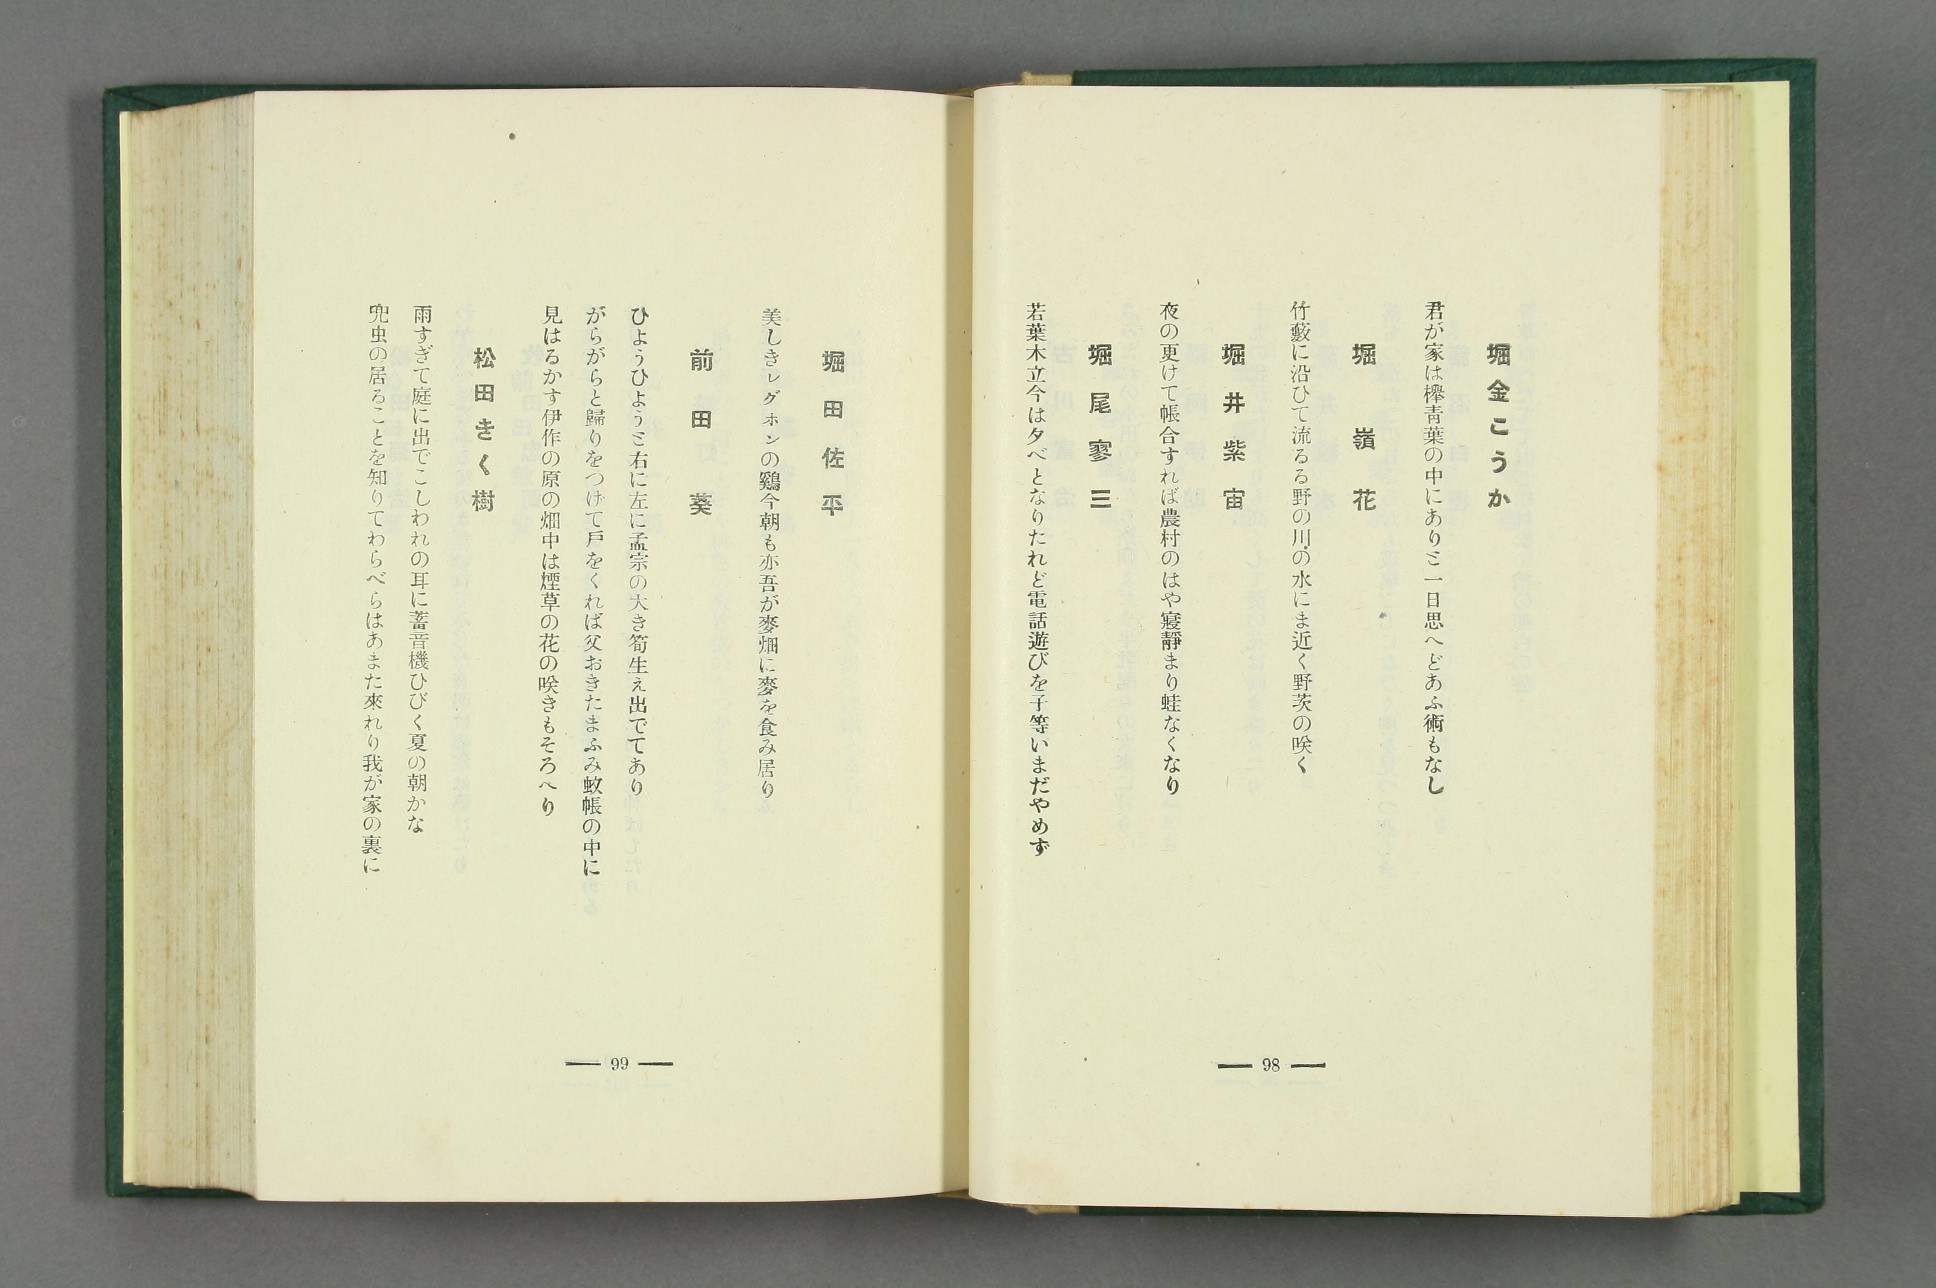 堀金こうか
君が家は欅青葉の中にありと一日思へどあふ術もなし
堀嶺花
竹藪に沿ひて流るる野の川の水にま近く野茨の咲く
堀井紫宙
夜の更けて帳合すれば農村のはや寢靜まり蛙なくなり
堀尾寥三
若葉木立今は夕べとなりたれど電話遊びを子等いまだやめず
98
堀田佐平
美しきレグホンの鷄今朝も亦吾が麥畑に麥を食み居り
前田葵
ひようひようと右に左に孟宗の大き筍生え出でてあり
がらがらと歸りをつげて戸をくれば父おきたまふみ蚊帳の中に
見はるかす伊作の原の畑中は煙草の花の咲きもそろへり
松田きく樹
雨すぎて庭に出でこしわれの耳に蓄音機ひびく夏の朝かな
兜虫の居ることを知りてわらべらはあまた來れり我が家の裏に
99